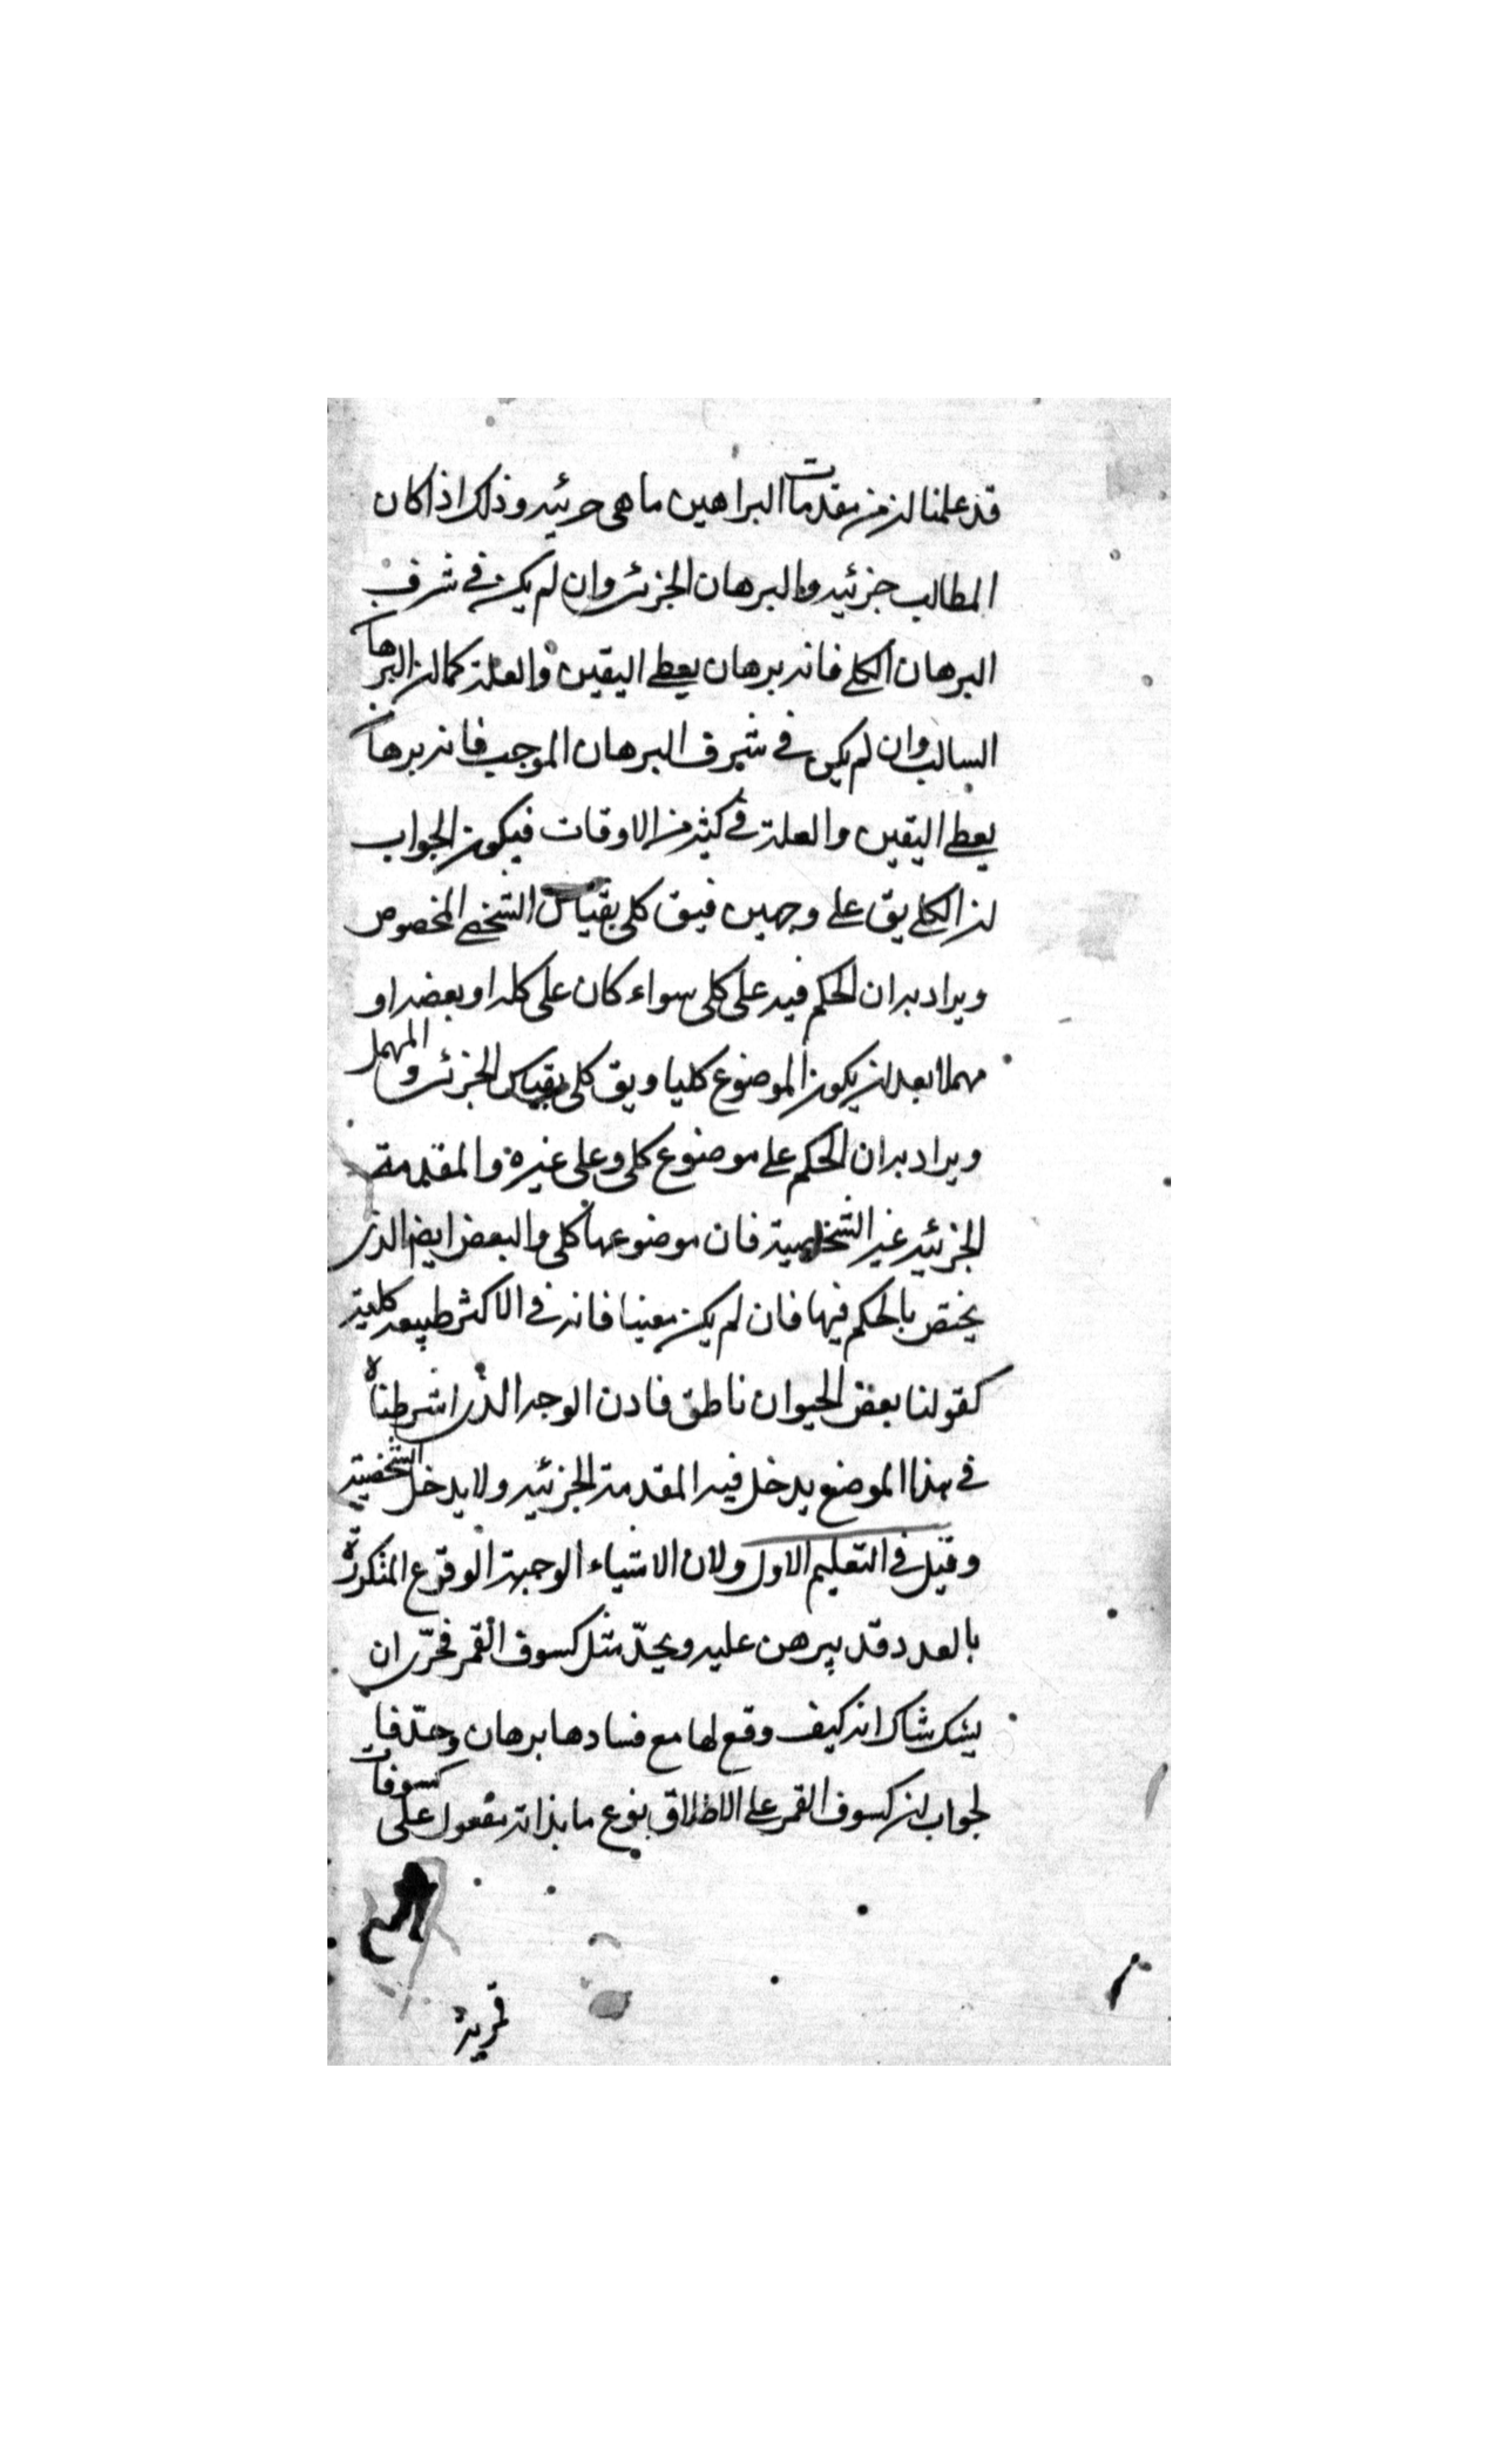 قد علمنا ان من مقدمات البراهين ما هى جزئيه وذلك اذا كان
المطالب جزئيه والبرهان الجزئى وان لم يكن فى شرف
البرهان الكلى فانه برهان يعطى اليقين والعلة كما ان البرهان
السالب وان لم يكن فى شرف البرهان الموجب فانه برهان
يعطى اليقين والعلة فى كثير من الاوقات فيكون الجواب
ان الكلى يق على وجهين فيق كلى بقياس الشخصى المخصوص
ويراد به ان الحكم فيه على كلى سواء كان على كله او بعضه او
مهملا بعد ان يكون الموضوع كليا ويق كلى بقياس الجزئى والمهمل
ويراد به ان الحكم على موضوع كلى وعلى غيره والمقدمة
الجزئيه غير الشخصية فان موضوعها كلى والبعض ايض الذى
يختص بالحكم فيها فان لم يكن معينا فانه فى الاكثر طبيعه كلية
كقولنا بعض الحيوان ناطق فاذن الوجه الذى اشرطناه
فى هذا الموضع يدخل فيه المقدمة الجزئيه ولا يدخل الشخصية
وقيل فى التعليم الاول ولان الاشياء الوجبة الوقوع المتكررة
بالعدد قد يبرهن عليه ويحدّ مثل كسوف القمر فحرّى ان
يشك شاك انه كيف وقع لها مع فسادها برهان وحدّ فا
لجواب ان كسوف القمر على الاطلاق بنوع ما بذاته مقول على كسوفات
قمرية